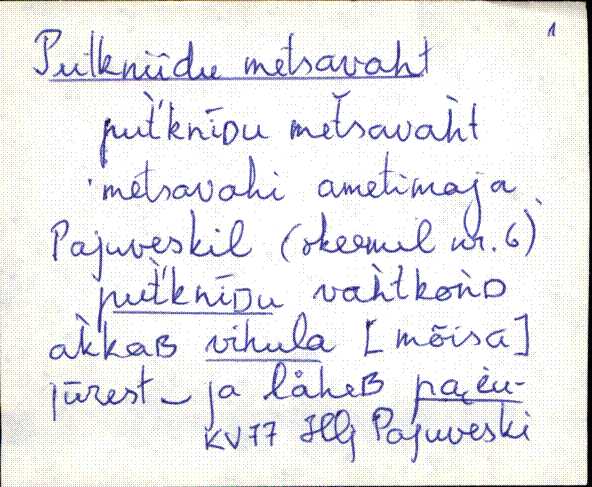 1
Putkniidu metsavaht
put̀'knīᴅu metsavah̀t
metsavahi ametimaja
Pajuveskil (skeemil nr. 6)
put̀'knīᴅu vah̀tkoǹᴅ
ak̀kaʙ vihula [mõisa]
jūrest ja låheʙ
KV77 Pajuveski